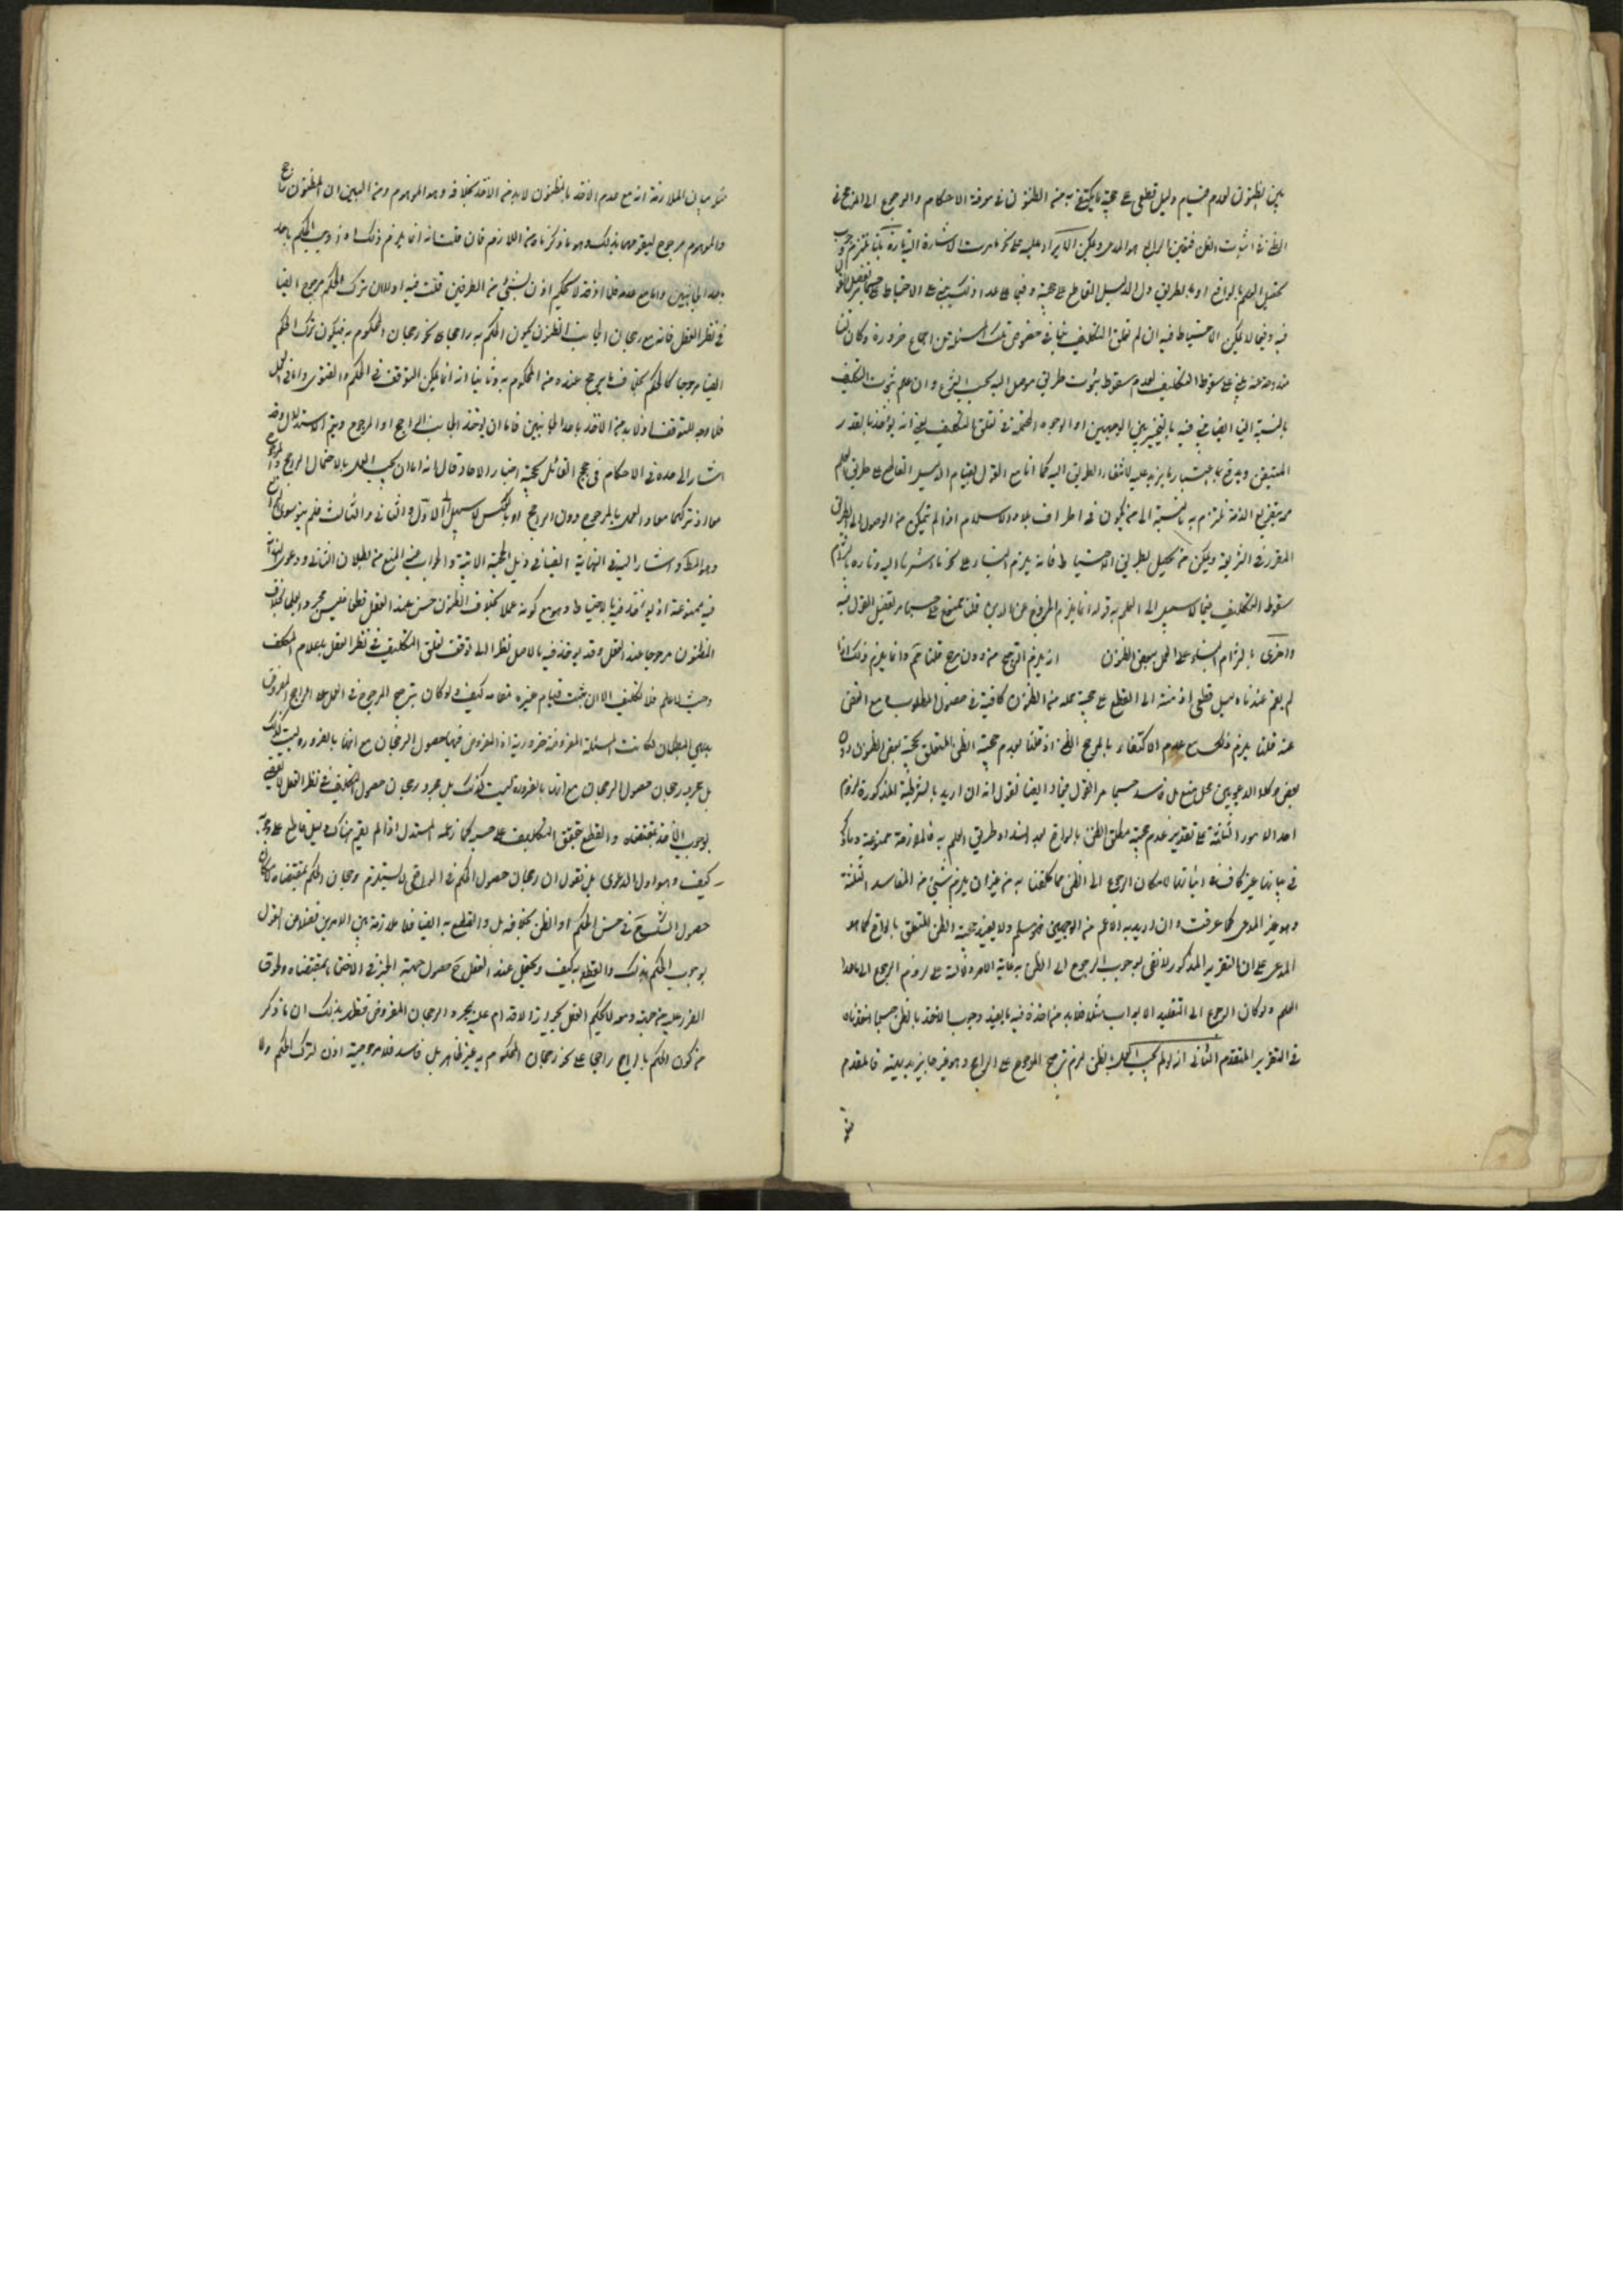 بين الظنون لعدم قيام دليل قطعي على حجية ما يكتفى به من الظنون في معرفة الاحكام والرجوع الى المرجح
الظنى اثبات الظن فتعين الرابع هو المدعى ويمكن الايراد عليه على نحو ما مرت الاشارة اليه تارة بانا نلتزم
بتحصيل العلم بالواقع او بالطريق دل الدليل القاطع على حجيته وفيما عدا ذلك يبنى على الاحتياط على حسبما مر تفصيل القول
فيه وفيما لا يمكن الاحتياط فيه ان لم نعلم تعلق التكليف بنا في خصوص تلك المسئلة من اجماع او ضرورة وكان لنا
مندوحة عنه يبنى على سقوط التكليف لعدم ثبوت طريق موصل اليه بحسب الشرع وان علم ثبوت التكليف
بالنسبة الينا ايضا يبنى فيه بالتخيير بين الوجهين او الوجوه المحتملة في تعلق التكليف يعنى انه يؤخذ بالقدر
المتيقن ويدفع اعتبار ما يزيد عليه لانتفاء الطريق اليه كما انا مع القول بقيام الدليل القاطع على طريق العلم
مر بتفريغ الذمة نلتزم به بالنسبة الى من يكون في اطراف بلاد الاسلام اذا لم يتمكن من الوصول الى الطريق
المقرر في الشريعة ويمكن من تحصيل طريق الاحتياط فانه يلزم البناء على نحو ما اشرنا اليه وتارة بالتزام
سقوط التكليف فيما لا سبيل الى العلم به قوله انما يلزم الخروج عن الدين قلنا ممنوع على حسبما مر تفصيل القول فيه
واخرى بالتزام البناء على العمل ببعض الظنون اذ يلزم الترجيح من دون مرجح قلنا نعم وانما يلزم ذلك اذا
لم يقم عندنا دليل قطعي او منته الى القطع على حجية جملة من الظنون كافية في حصول المطلوب مع الغض
عنه قلنا يلزم ذلك مع عدم الاكتفاء بالمرجح الظني اذ قلنا بعدم حجية الظن المتعلق بحجية بعض الظنون دون
بعض وكلا الدعويين محل منع بل فاسد حسبما مر القول فيها وايضا نقول انه ان اريد بالشرطية المذكورة لزوم
احد الامور الثلثة على تقدير عدم حجية مطلق الظن بالواقع بعد انسداد طريق العلم به فالملازمة ممنوعة وما ذكر
في بيانها غير كاف في اثباتها لامكان الرجوع الى الظن بما كلفنا به من غير ان يلزم شئ من المفاسد الثلثة
وهو غير المدعى كما عرفت وان اريد به الاعم من الوجهين فمسلم ولا يفيد حجية الظن المتعلق بالواقع كما هو
المدعى على ان التقرير المذكور لا يفى بوجوب الرجوع الى الظن به غاية الامر دلالته على لزوم الرجوع الى ما عدا
العلم ولو كان الرجوع الى التقليد الا بواب مثله فلا بد من اخذه فيه ما يفيد وجوب الاخذ بالظن حسبما اخذناه
في التقرير المتقدم الثاني انه لو لم يجب العمل بالظن لزم ترجيح المرجوح على الراجح وهو غير جايز بديهة فالمقدم
مثله
مثله بيان الملازمة انه مع عدم الاخذ بالمظنون لابد من الاخذ بخلافه وهو الموهوم ومن البين ان المظنون راجح
والموهوم مرجوح لتقومهما بذلك وهو ما ذكرناه من اللازم فان قلت انه انما يلزم ذلك اذا وجب الحكم باحد
الجانبين واما مع عدمه فلا اذ قد لا يحكم اذن بشئ من الطرفين قلت فيه اولا ان ترك الحكم مرجوح ايضا
في نظر العقل فانه مع رجحان الجانب المظنون يكون الحكم به راجحا على نحو رجحان المحكوم به فيكون ترك الحكم
ايضا مرجوحا كالحكم بخلاف ما يرجح عنده من المحكوم به وثانيا انه انما يمكن التوقف في الحكم والفتوى واما في العمل
فلا وجه للتوقف اذ لا بد من الاخذ باحد الجانبين فاما ان يؤخذ بالجانب الراجح او المرجوح ويتم الاستدلال وقد
اشار الى هذه في الاحكام في حجج القائل بحجية اخبار الاحاد وقال انه اما ان يجب العمل بالاحتمال الراجح والمرجوح
معا او تركهما معا او العمل بالمرجوح دون الراجح او بالعكس لا سبيل الى الاول والثاني والثالث فلم يبق سوى الرابع
وهو المطلوب واشار اليه في النهاية ايضا في ذيل الحجة الاتية والجواب عنه المنع من بطلان التالى ودعوى البداهة
فيه ممنوعة اذ قد يؤخذ فيه بالاحتياط وهو مع كونه عملا بخلاف المظنون حسن عند العقل قطعا فليس مجرد العمل بخلاف
المظنون مرجوحا عند العقل وقد يؤخذ فيه بالاصل نظرا الى توقف تعلق التكليف في نظر العقل باعلام المكلف
وحيث لا علم فلا تكليف الا ان يثبت قيام غيره مقامه كيف ولو كان ترجيح المرجوح في العمل على الراجح المفروض
بديهي البطلان لكانت المسئلة المفروضة ضرورية اذ المفروض فيها حصول الرجحان مع انها بالضرورة ليست كذلك
بل مجرد رجحان حصول الرجحان مع انها بالضرورة ليست كذلك بل مجرد رجحان حصول التكليف في نظر العقل لا يقضى
بوجوب الاخذ بمقتضاه والقطع بتحقق التكليف على حسبه كما زعمه المستدل اذا لم يقم هناك دليل قاطع على وجوبه
كيف وهو اول الدعوى بل نقول ان رجحان حصول الحكم في الواقع لا يستلزم رجحان الحكم بمقتضاه لامكان
حصول الشك ح في حسن الحكم او الظن بخلافه بل والقطع به ايضا فلا ملازمة بين الامرين فضلا عن القول
بوجوب الحكم بذلك والقطع به كيف ويحتمل عند العقل ح حصول جهة الحظر في الافتاء بمقتضاه ولحوق
الضرر عليه من جهته ومعه لا يحكم العقل بجواز الاقدام عليه بمجرد الرجحان المفروض فظهر بذلك ان ما ذكر
من كون الحكم بالراجح راجحا على نحو رجحان المحكوم به غير ظاهر بل فاسد فلا مرجوحية اذن لترك الحكم ولا